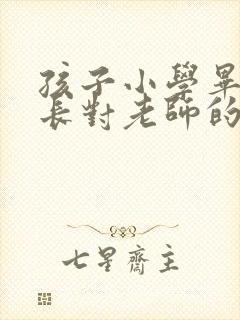 孩子小學畢
長對老師的
七星齋主